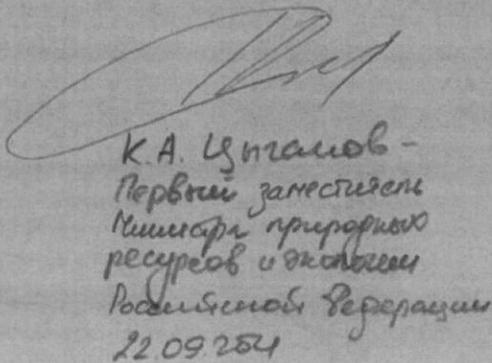 К.А. Цыганов –
Первый заместитель
Министра природных
ресурсов и экологии
Российской Федерации
22.09.